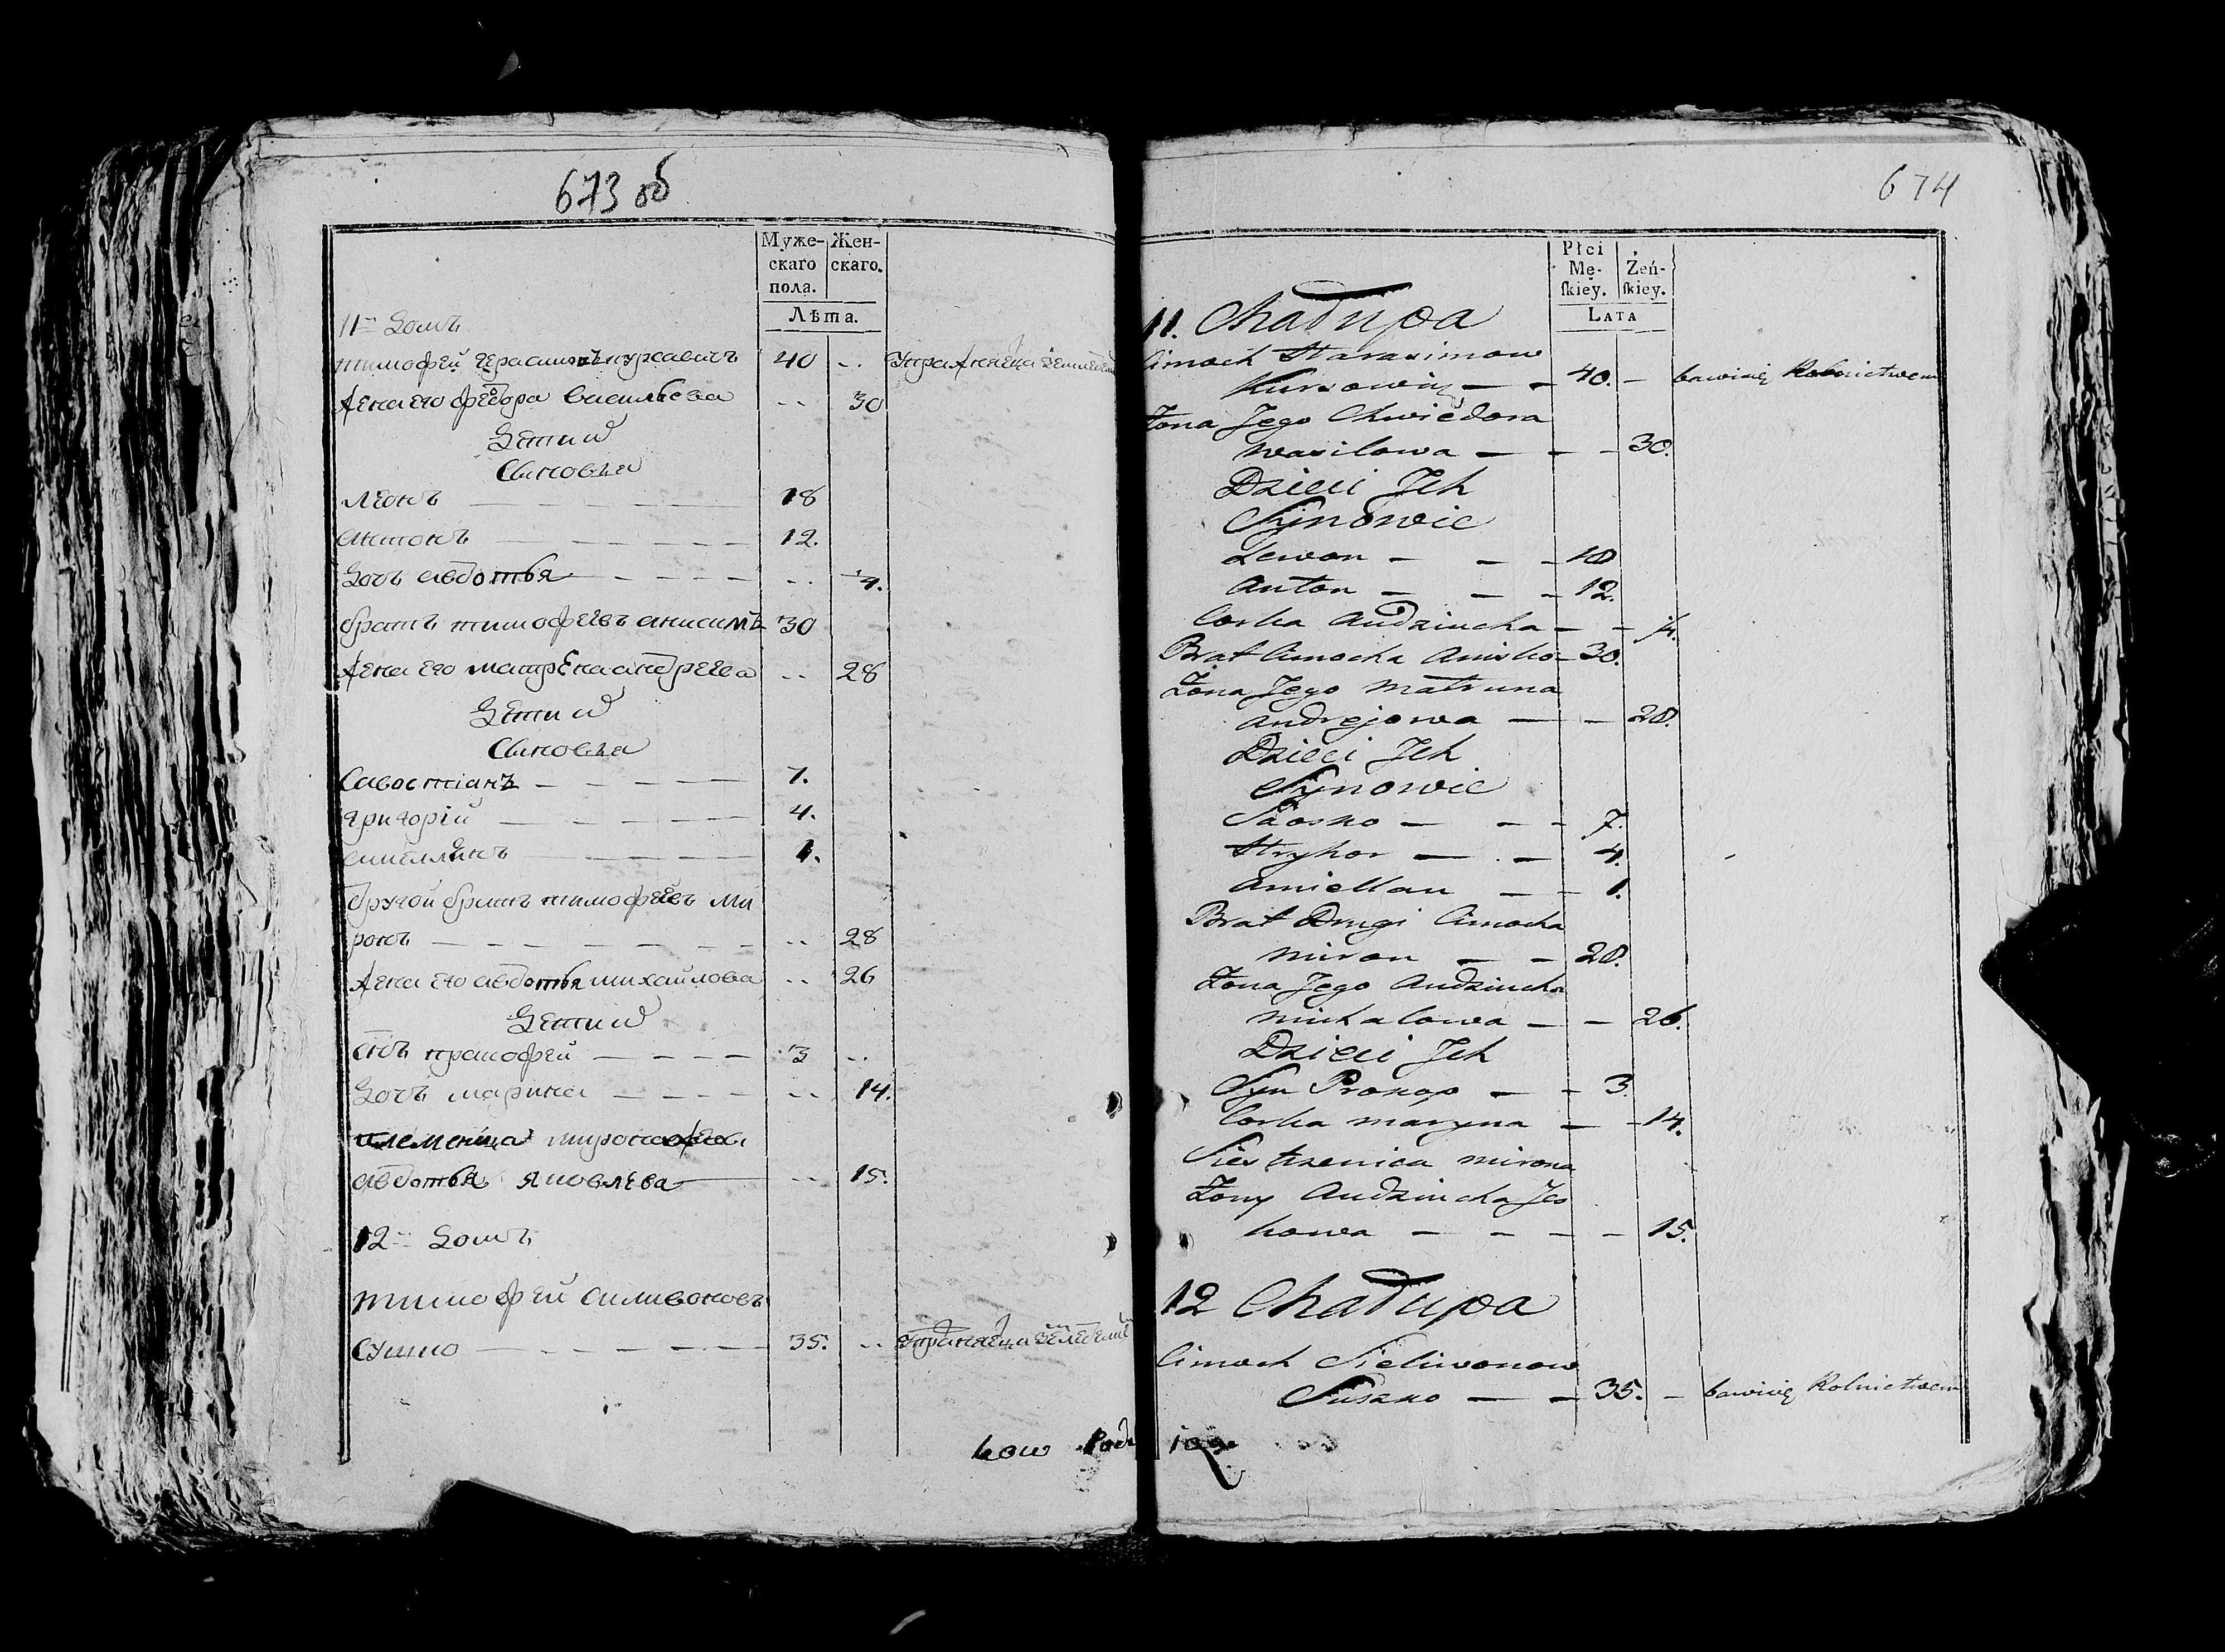 673 об
Муже- Жен-
скаго скаго.
пола.
Лѣта.
11 домъ
тимофей герасимовъ курсавичъ 40 -- упражняеца
Жена его федора василева -- 30
Дети и
Сыновья
леонъ 18
антонъ 12.
дочь авдотья -- 4.
братъ тимофеевъ анисимъ 30
Жена его матрена андреева -- 28
Дети и
Сыновья
Савостіанъ 7.
григорій 4.
емиллянъ 1.
другой братъ тимофеевъ ми
ронъ -- 28
Жена его авдотья михайлова -- 26
Дети и
сынъ 3 --
дочь марина -- 14.
племеница мирона
авдотья яковлева -- 15.
12 домъ
тимофей силивоновъ
сушко 35. --
674
Płci
Mę- Żeń-
skiey. skiey.
LATA
11. Chałupa
Cimoch Harasimow
Kursowicz 40. — bawisię Rolnictwem
Żona Jego Chwiedora
wasilowa — 30.
Dzieci Jch
Synowie
Lewon 18
Anton 12.
Corka Audziucha — 4.
Brat Cimocha Anisko 30.
Żona Jego Matruna
andrejowa — 28.
Dzieci Jch
Synowie
Saosko 7.
Hryhor 4.
Amiellan 1.
Brat Drugi Cimocha
miron 28.
Żona Jego Audziucha
michalowa — 26.
Dzieci Jch
Syn Prokop 3.
Corka maryna — 14.
Siestrzenica mirona
Żony Audziucha Jes
kowa — 15.
12 Chałupa
Cimoch Sieliwonow
Suszko 35. — bawisię Rolnictwem